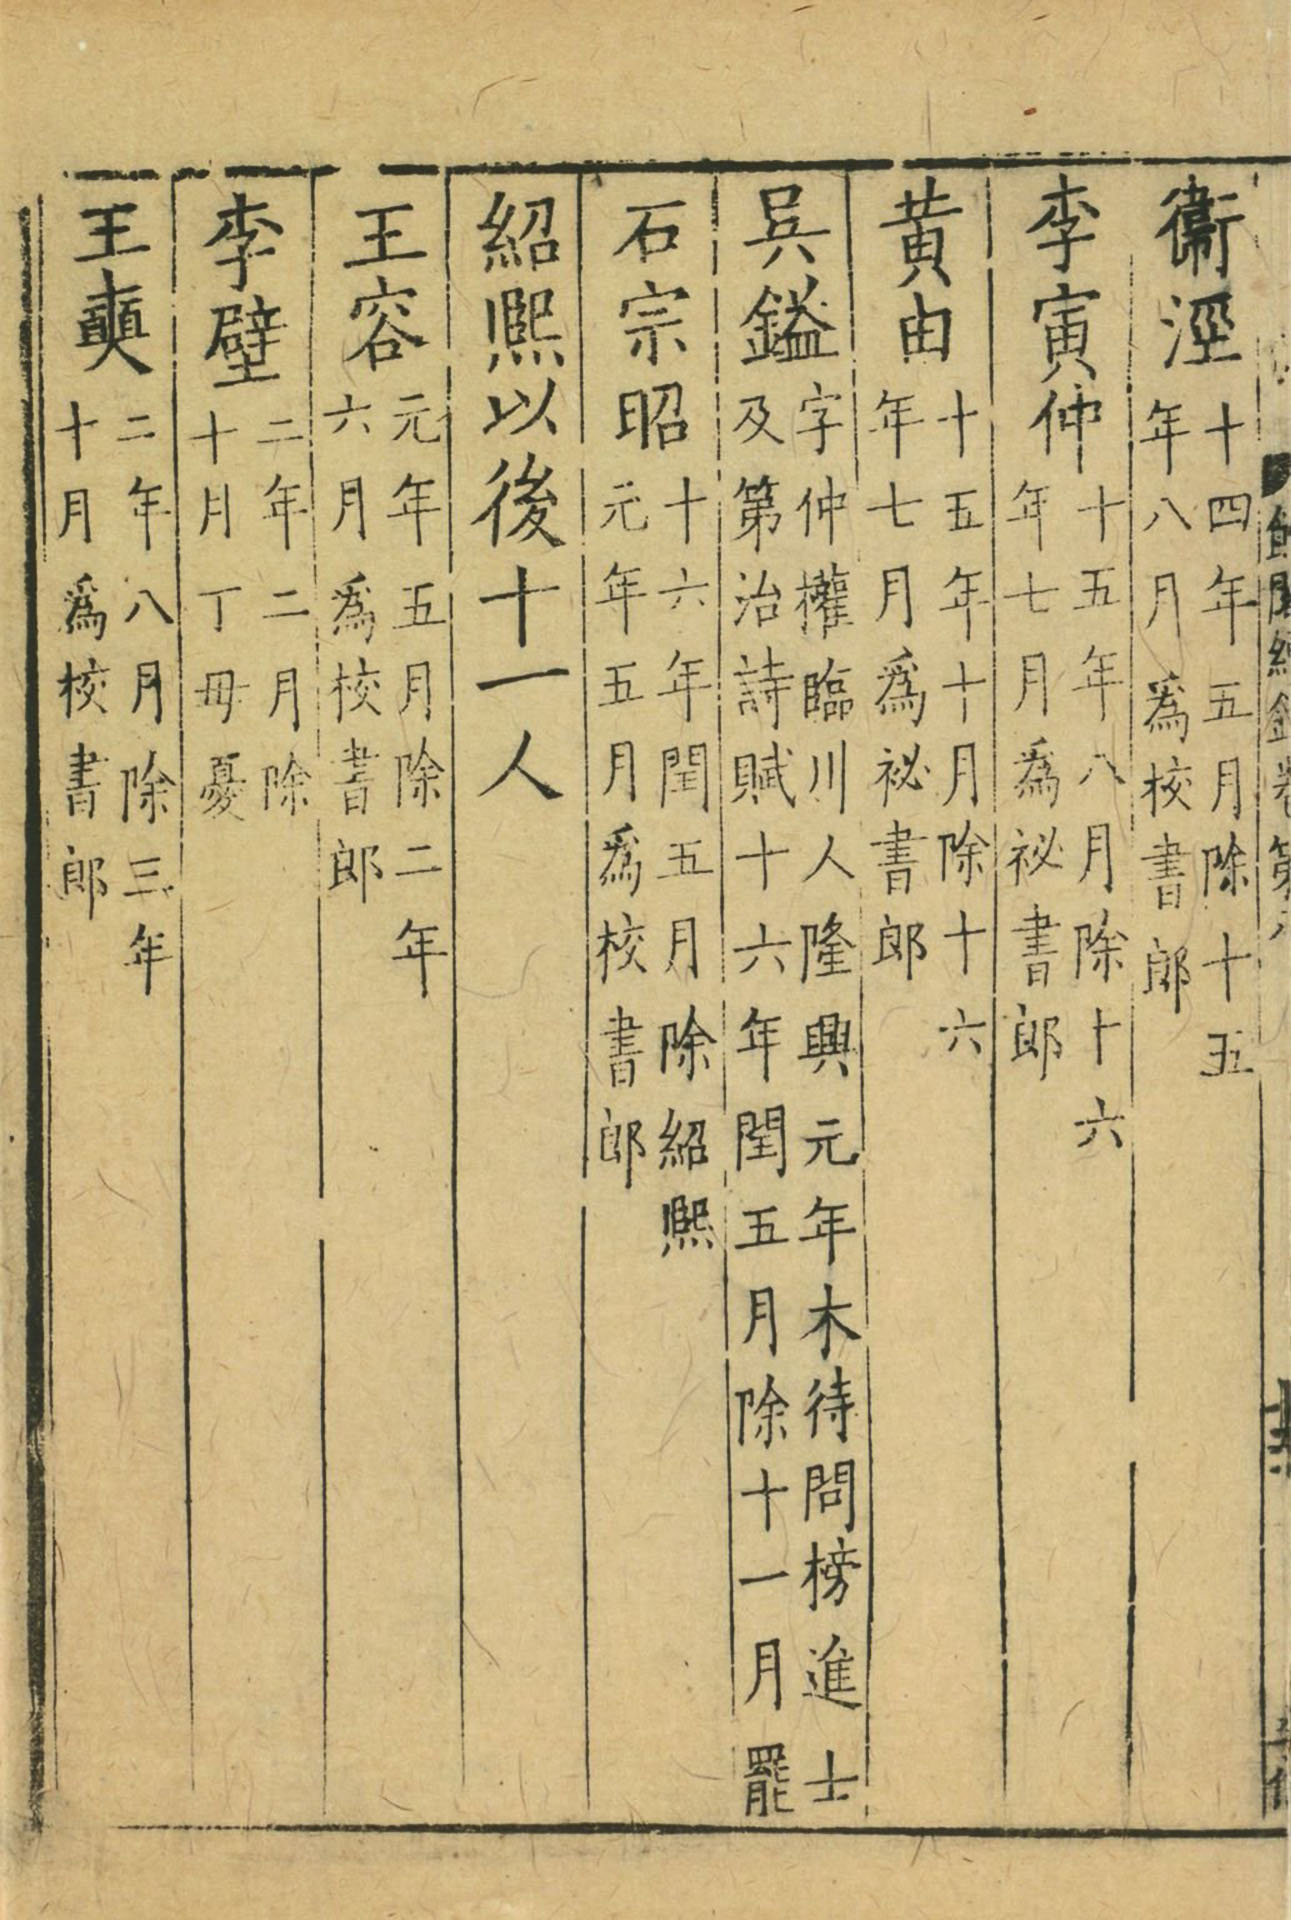 衞涇十四年五月除十五
年八月為校書郎
李寅仲十五年八月除十六
年七月為祕書郎
黄由十五年十月除十六
年七月為祕書郎
吳鎰字仲權臨川人隆興元年木待問榜進士
及第治詩賦十六年閏五月除十一月罷
石宗昭十六年閏五月除紹熙
元年五月為校書郎
紹熙以後十一人
王容元年五月除二年
六月為校書郎
李壁二年二月除
十月丁毋憂
王奭二年八月除三年
十月為校書郎